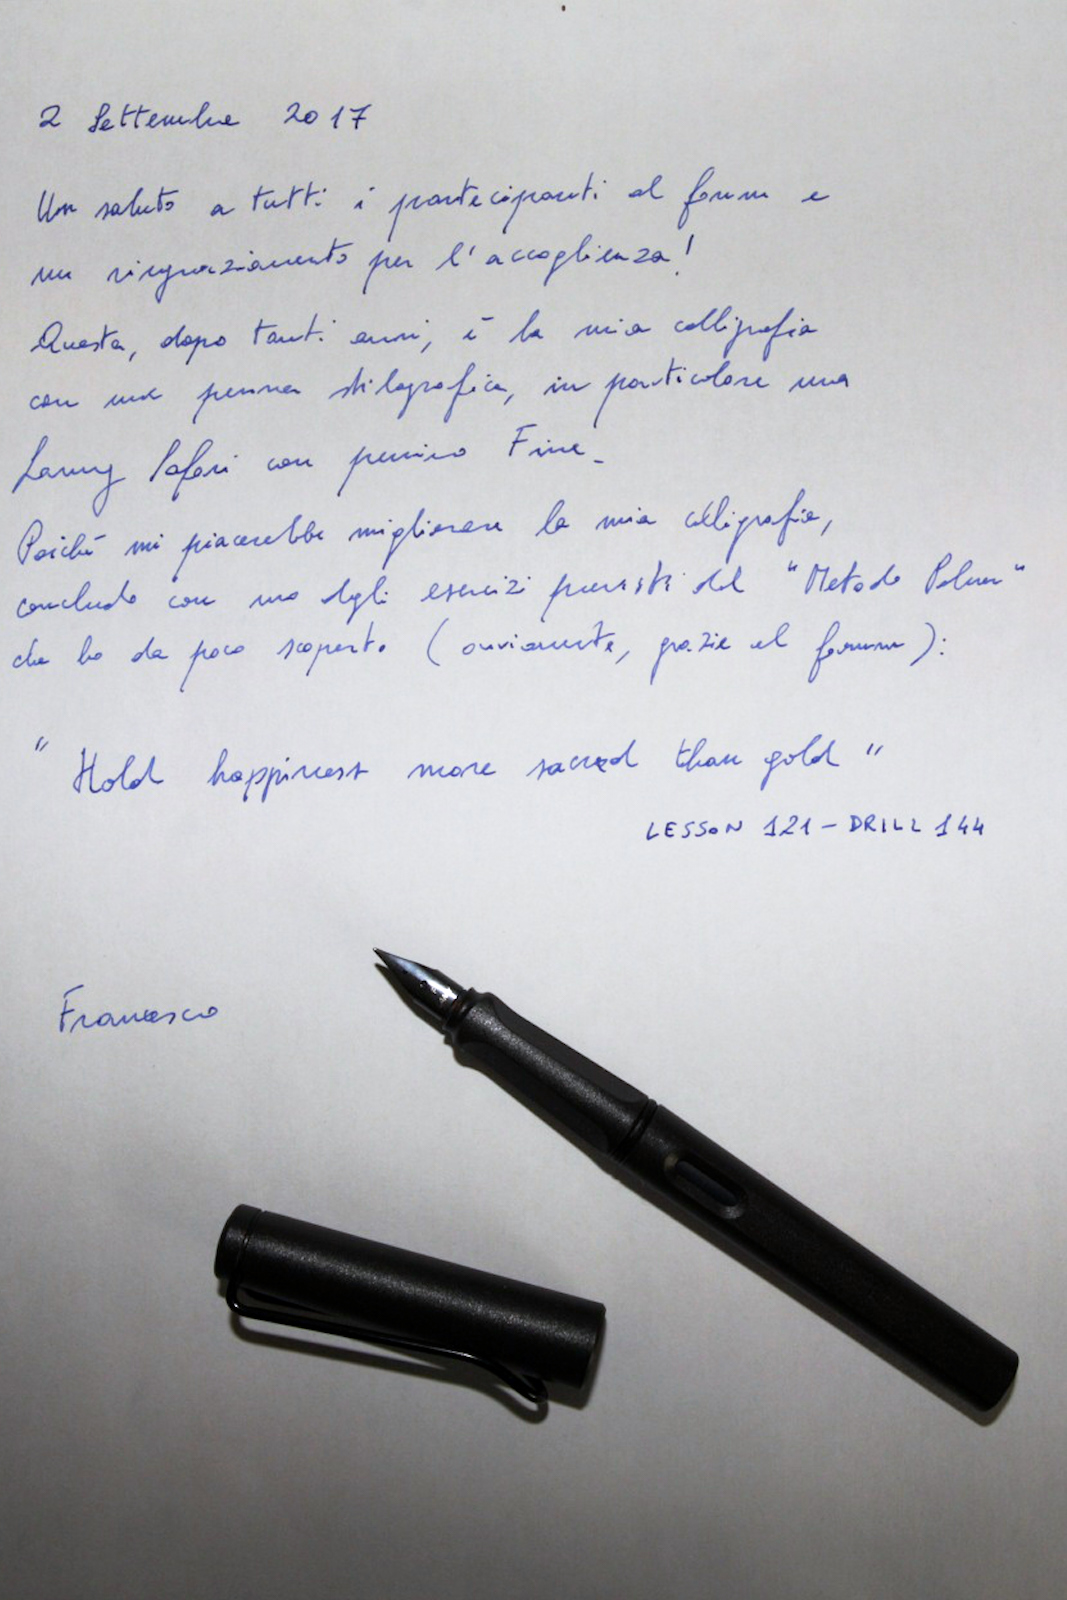 2 Settembre 2017
Un saluto a tutti i partecipanti al forum e
un ringraziamento per l'accoglienza!
Questa, dopo tanti anni, è la mia calligrafia
con una penna stilografica, in particolare una
Lamy Safari con pennino Fine.
Poichè mi piacerebbe migliorare la mia calligrafia,
concludo con uno degli esercizi previsti dal "Metodo Palmer"
che ho da poco scoperto (ovviamente, grazie al forum):
"Hold happiness more sacred than gold"
LESSON 121 - DRILL 144
Francesco